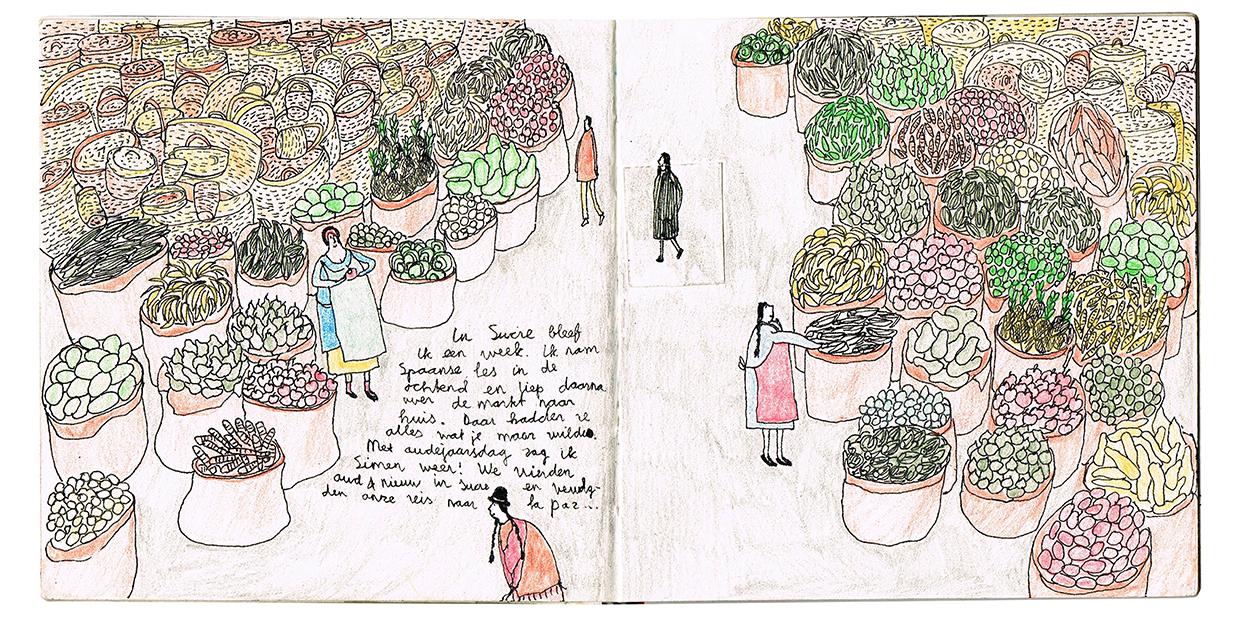 In Sucre bleef
ik een week. Ik nam
Spaanse les in de
ochtend en liep daarna
over de markt naar
huis. Daar hadden ze
alles wat je maar wilde.
Met oudejaarsdag zag ik
Simen weer! We vierden
oud & nieuw in Sucre en vervolg-
den onze reis naar la paz...